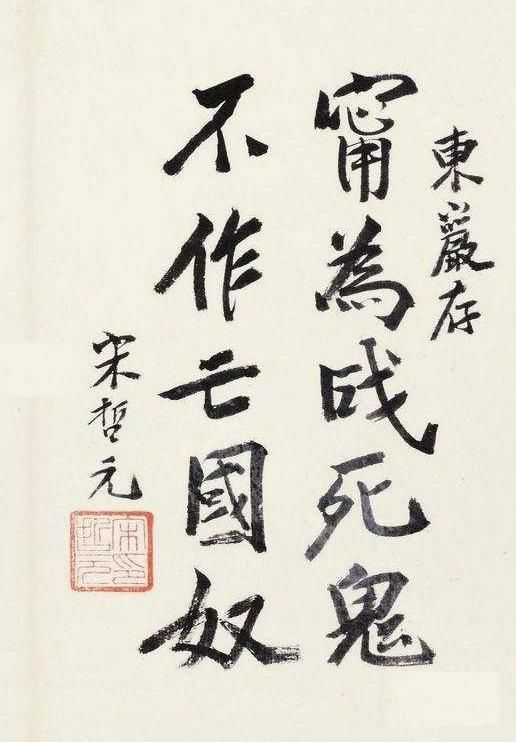 東巖存
甯為战死鬼
不作亡國奴
宋哲元
宋印哲元